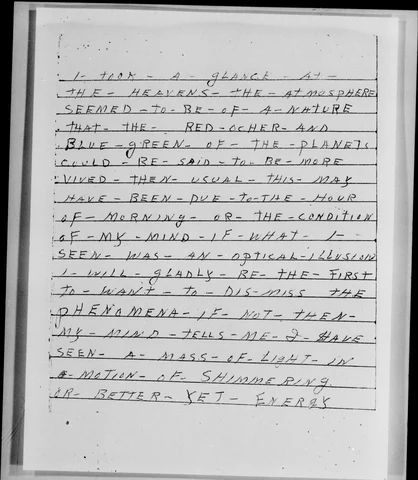 I- TOOK- A- GLANCE- AT-
THE- HEAVENS- THE- ATMOSPHERE
SEEMED-TO-BE-OF-A-NATURE
THAT-THE- RED-OCHER-AND
BLUE-GREEN-OF-THE-PLANETS
COULD-BE-SAID-TO-BE-MORE
VIVED-THEN-USUAL-THIS-MAY
HAVE-BEEN-DUE-TO-THE-HOUR
OF-MORNING-OR-THE-CONDITION
OF-MY-MIND-IF-WHAT-I-
SEEN-WAS-AN-OPTICAL-ILLUSION
I-WILL-GLADLY-BE-THE-FIRST
TO-WANT-TO-DIS-MISS THE
PHENOMENA-IF-NOT-THEN-
MY-MIND-TELLS-ME-I-HAVE
SEEN-A-MASS-OF-LIGHT-IN
A-MOTION-OF-SHIMMERING
OR-BETTER-YET-ENERGY